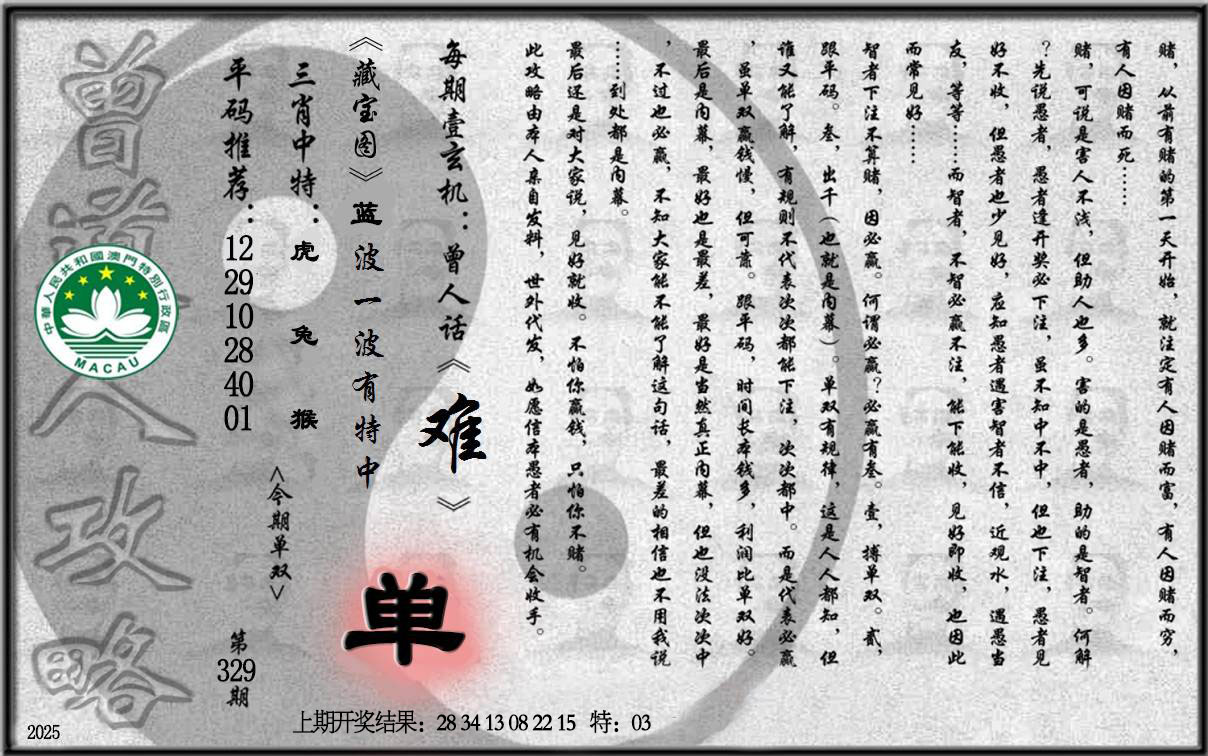 赌，从前有赌的第一天开始，就注定有人因赌而富，有人因赌而穷，
有人因赌而死……
赌，可说是害人不浅，但助人也多。害的是愚者，助的是智者。何解
？先说愚者，愚者逢开奖必下注，虽不知中不中，但也下注，愚者见
好不收，但愚者也少见好，应知愚者遇害智者不信，近观水，遇愚当
友，等等……而智者，不智必赢不注，能下能收，见好即收，也因此
而常见好……
智者下注不算赌，因必赢。何谓必赢？必赢有叁。壹，搏单双。贰，
跟平码。叁，出千（也就是内幕）。单双有规律，这是人人都知，但
谁又能了解，有规则不代表次次都能下注，次次都中。而是代表必赢
，虽单双赢钱慢，但可靠。跟平码，时间长本钱多，利润比单双好。
最后是内幕，最好也是最差，最好是当然真正内幕，但也没法次次中
，不过也必赢，不知大家能不能了解这句话，最差的相信也不用我说
……到处都是内幕。
最后还是对大家说，见好就收。不怕你赢钱，只怕你不赌。
此攻略由本人亲自发料，世外代发，如愿信本愚者必有机会收手。
每期壹玄机：曾人话《难》
《藏宝图》蓝波一波有特中
三肖中特：虎 兔 猴
<今期单双>
单
平码推荐：12 29 10 28 40 01
第329期
曾道人攻略
中華人民共和國澳門特別行政區
MACAU
上期开奖结果：28 34 13 08 22 15 特：03
2025